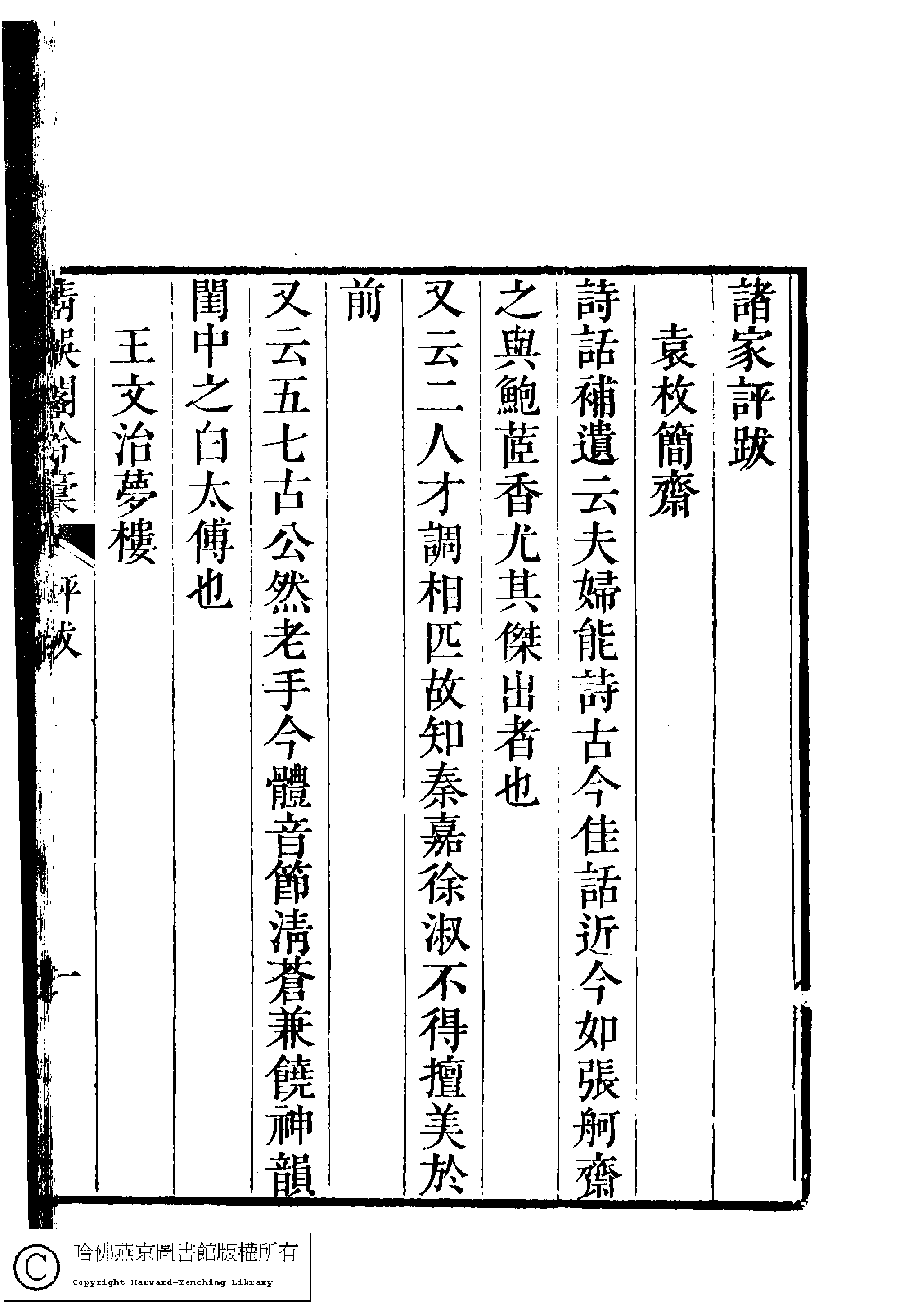 諸家評跋
袁枚簡齋
詩話補遺云夫婦能詩古今佳話近今如張舸齋
之與鮑茝香尤其傑出者也
又云二人才調相匹故知秦嘉徐淑不得擅美於
前
又云五七古公然老手今體音節淸蒼兼饒神韻
閨中之白太傅也
王文治夢樓
清娛閣吟稾 評跋 一
哈佛燕京圖書館版權所有
Copyright Harvard-Yenching Library